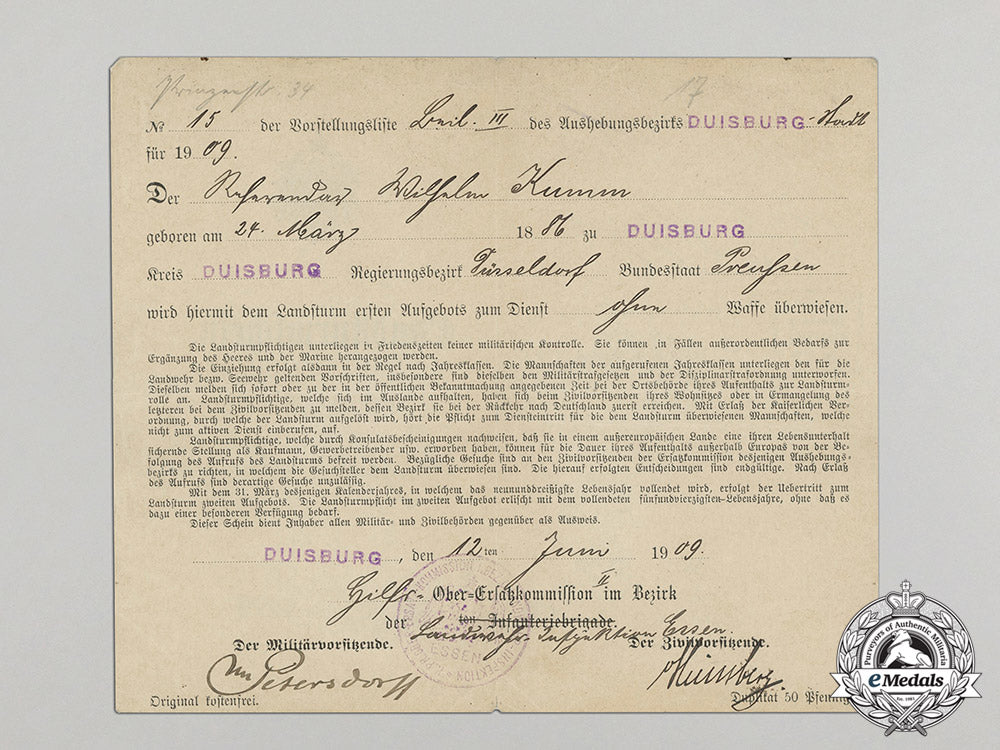 Prinzenstr. 34 17
№ 15 der Vorstellungsliste Beil. III des Aushebungsbezirks DUISBURG-Stadt
für 1909.
Der Referendar Wilhelm Kumm
geboren am 24. März 1886 zu DUISBURG
Kreis DUISBURG Regierungsbezirk Düsseldorf Bundesstaat Preußen
wird hiermit dem Landsturm ersten Aufgebots zum Dienst ohne Waffe überwiesen.
Die Landsturmpflichtigen unterliegen in Friedenszeiten keiner militärischen Kontrolle. Sie können in Fällen außerordentlichen Bedarfs zur
Ergänzung des Heeres und der Marine herangezogen werden.
Die Einziehung erfolgt alsdann in der Regel nach Jahresklassen. Die Mannschaften der aufgerufenen Jahresklassen unterliegen den für die
Landwehr bezw. Seewehr geltenden Vorschriften, insbesondere sind dieselben den Militärstrafgesetzen und der Disziplinarstrafordnung unterworfen.
Dieselben melden sich sofort oder zu der in der öffentlichen Bekanntmachung angegebenen Zeit bei der Ortsbehörde ihres Aufenthalts zur Landsturm-
rolle an. Landsturmpflichtige, welche sich im Auslande aufhalten, haben sich beim Zivilvorsitzenden ihres Wohnsitzes oder in Ermangelung des
letzteren bei dem Zivilvorsitzenden zu melden, dessen Bezirk sie bei der Rückkehr nach Deutschland zuerst erreichen. Mit Erlaß der Kaiserlichen Ver-
ordnung, durch welche der Landsturm aufgelöst wird, hört die Pflicht zum Diensteintritt für die dem Landsturm überwiesenen Mannschaften, welche
nicht zum aktiven Dienst einberufen, auf.
Landsturmpflichtige, welche durch Konsulatsbescheinigungen nachweisen, daß sie in einem außereuropäischen Lande eine ihren Lebensunterhalt
sichernde Stellung als Kaufmann, Gewerbetreibender usw. erworben haben, können für die Dauer ihres Aufenthalts außerhalb Europas von der Be-
folgung des Aufrufs des Landsturms befreit werden. Bezügliche Gesuche sind an den Zivilvorsitzenden der Ersatzkommission desjenigen Aushebungs-
bezirks zu richten, in welchem die Gesuchsteller dem Landsturm überwiesen sind. Die hierauf erfolgten Entscheidungen sind endgültige. Nach Erlaß
des Aufrufs sind derartige Gesuche unzulässig.
Mit dem 31. März desjenigen Kalenderjahres, in welchem das neununddreißigste Lebensjahr vollendet wird, erfolgt der Uebertritt zum
Landsturm zweiten Aufgebots. Die Landsturmpflicht im zweiten Aufgebot erlischt mit dem vollendeten fünfundvierzigsten Lebensjahre, ohne daß es
dazu einer besonderen Verfügung bedarf.
Dieser Schein dient Inhaber allen Militär- und Zivilbehörden gegenüber als Ausweis.
DUISBURG, den 12ten Juni 1909.
Hilfs-Ober-Ersatzkommission II im Bezirk
der ten Infanteriebrigade.
Landwehr-Inspektion Essen.
Der Militärvorsitzende. Der Zivilvorsitzende.
ESSEN
v. Petersdorff
Original kostenfrei. Duplikat 50 Pfennig
Purveyors of Authentic Militaria
eMedals